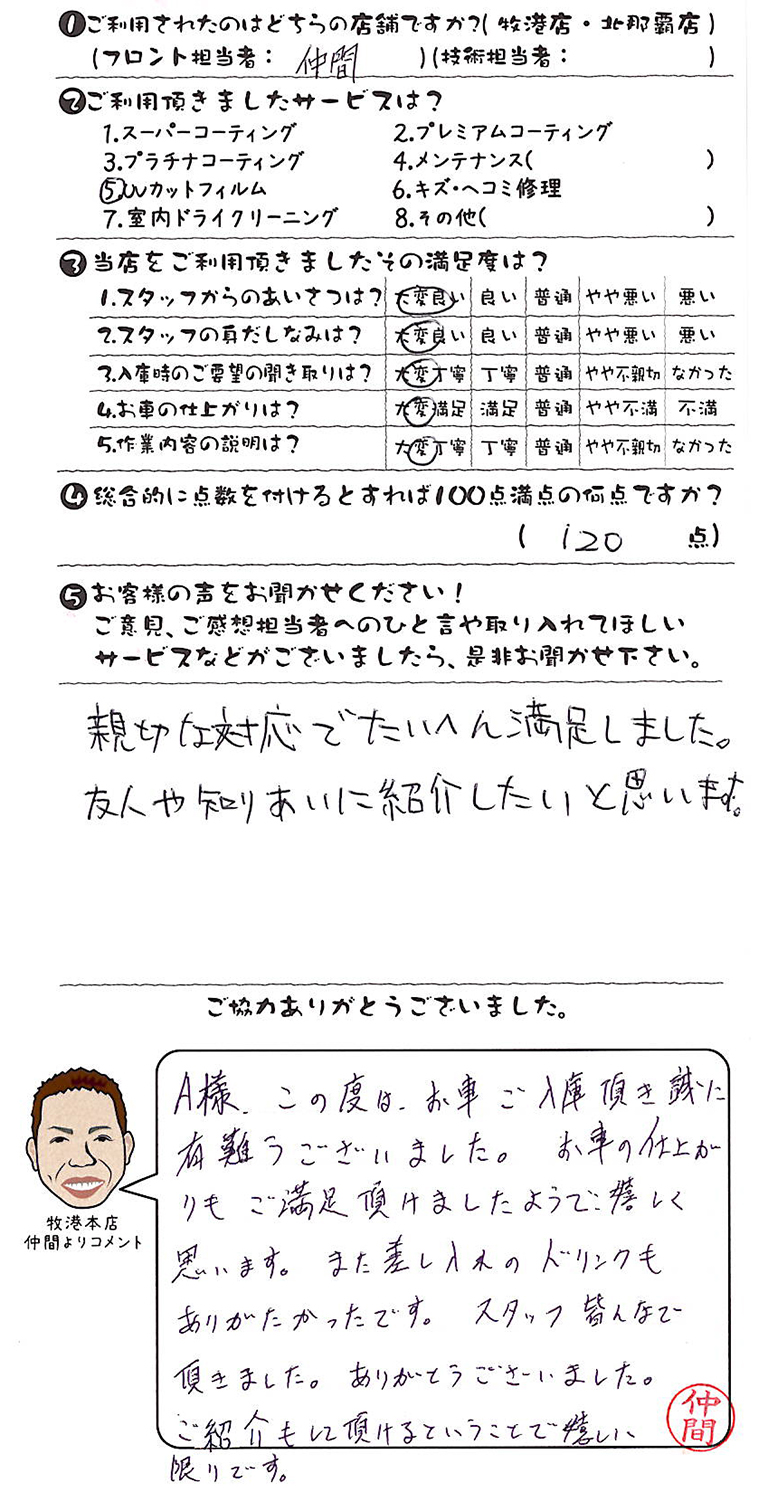 ❶ご利用されたのはどちらの店舗ですか?( 牧港店・北那覇店 )
(フロント担当者: 仲間 )(技術担当者: )
❷ご利用頂きましたサービスは?
1.スーパーコーティング 2.プレミアムコーティング
3.プラチナコーティング 4.メンテナンス( )
⑤UVカットフィルム 6.キズ・ヘコミ修理
7.室内ドライクリーニング 8.その他( )
❸当店をご利用頂きましたその満足度は?
1.スタッフからのあいさつは? 大変良い 良い 普通 やや悪い 悪い
2.スタッフの身だしなみは? 大変良い 良い 普通 やや悪い 悪い
3.入庫時のご要望の聞き取りは? 大変丁寧 丁寧 普通 やや不親切 なかった
4.お車の仕上がりは? 大変満足 満足 普通 やや不満 不満
5.作業内容の説明は? 大変丁寧 丁寧 普通 やや不親切 なかった
❹総合的に点数を付けるとすれば100点満点の何点ですか?
( 120 点)
❺お客様の声をお聞かせください!
ご意見、ご感想担当者へのひと言や取り入れてほしい
サービスなどがございましたら、是非お聞かせ下さい。
親切な対応でたいへん満足しました。
友人や知りあいに紹介したいと思います。
ご協力ありがとうございました。
A様、この度は、お車ご入庫頂き誠に
有難うございました。 お車の仕上が
りもご満足頂けましたようで嬉しく
思います。また差し入れのドリンクも
ありがたかったです。 スタッフ皆んなで
頂きました。ありがとうございました。
ご紹介もして頂けるということで嬉しい
限りです。
牧港本店
仲間よりコメント
仲間